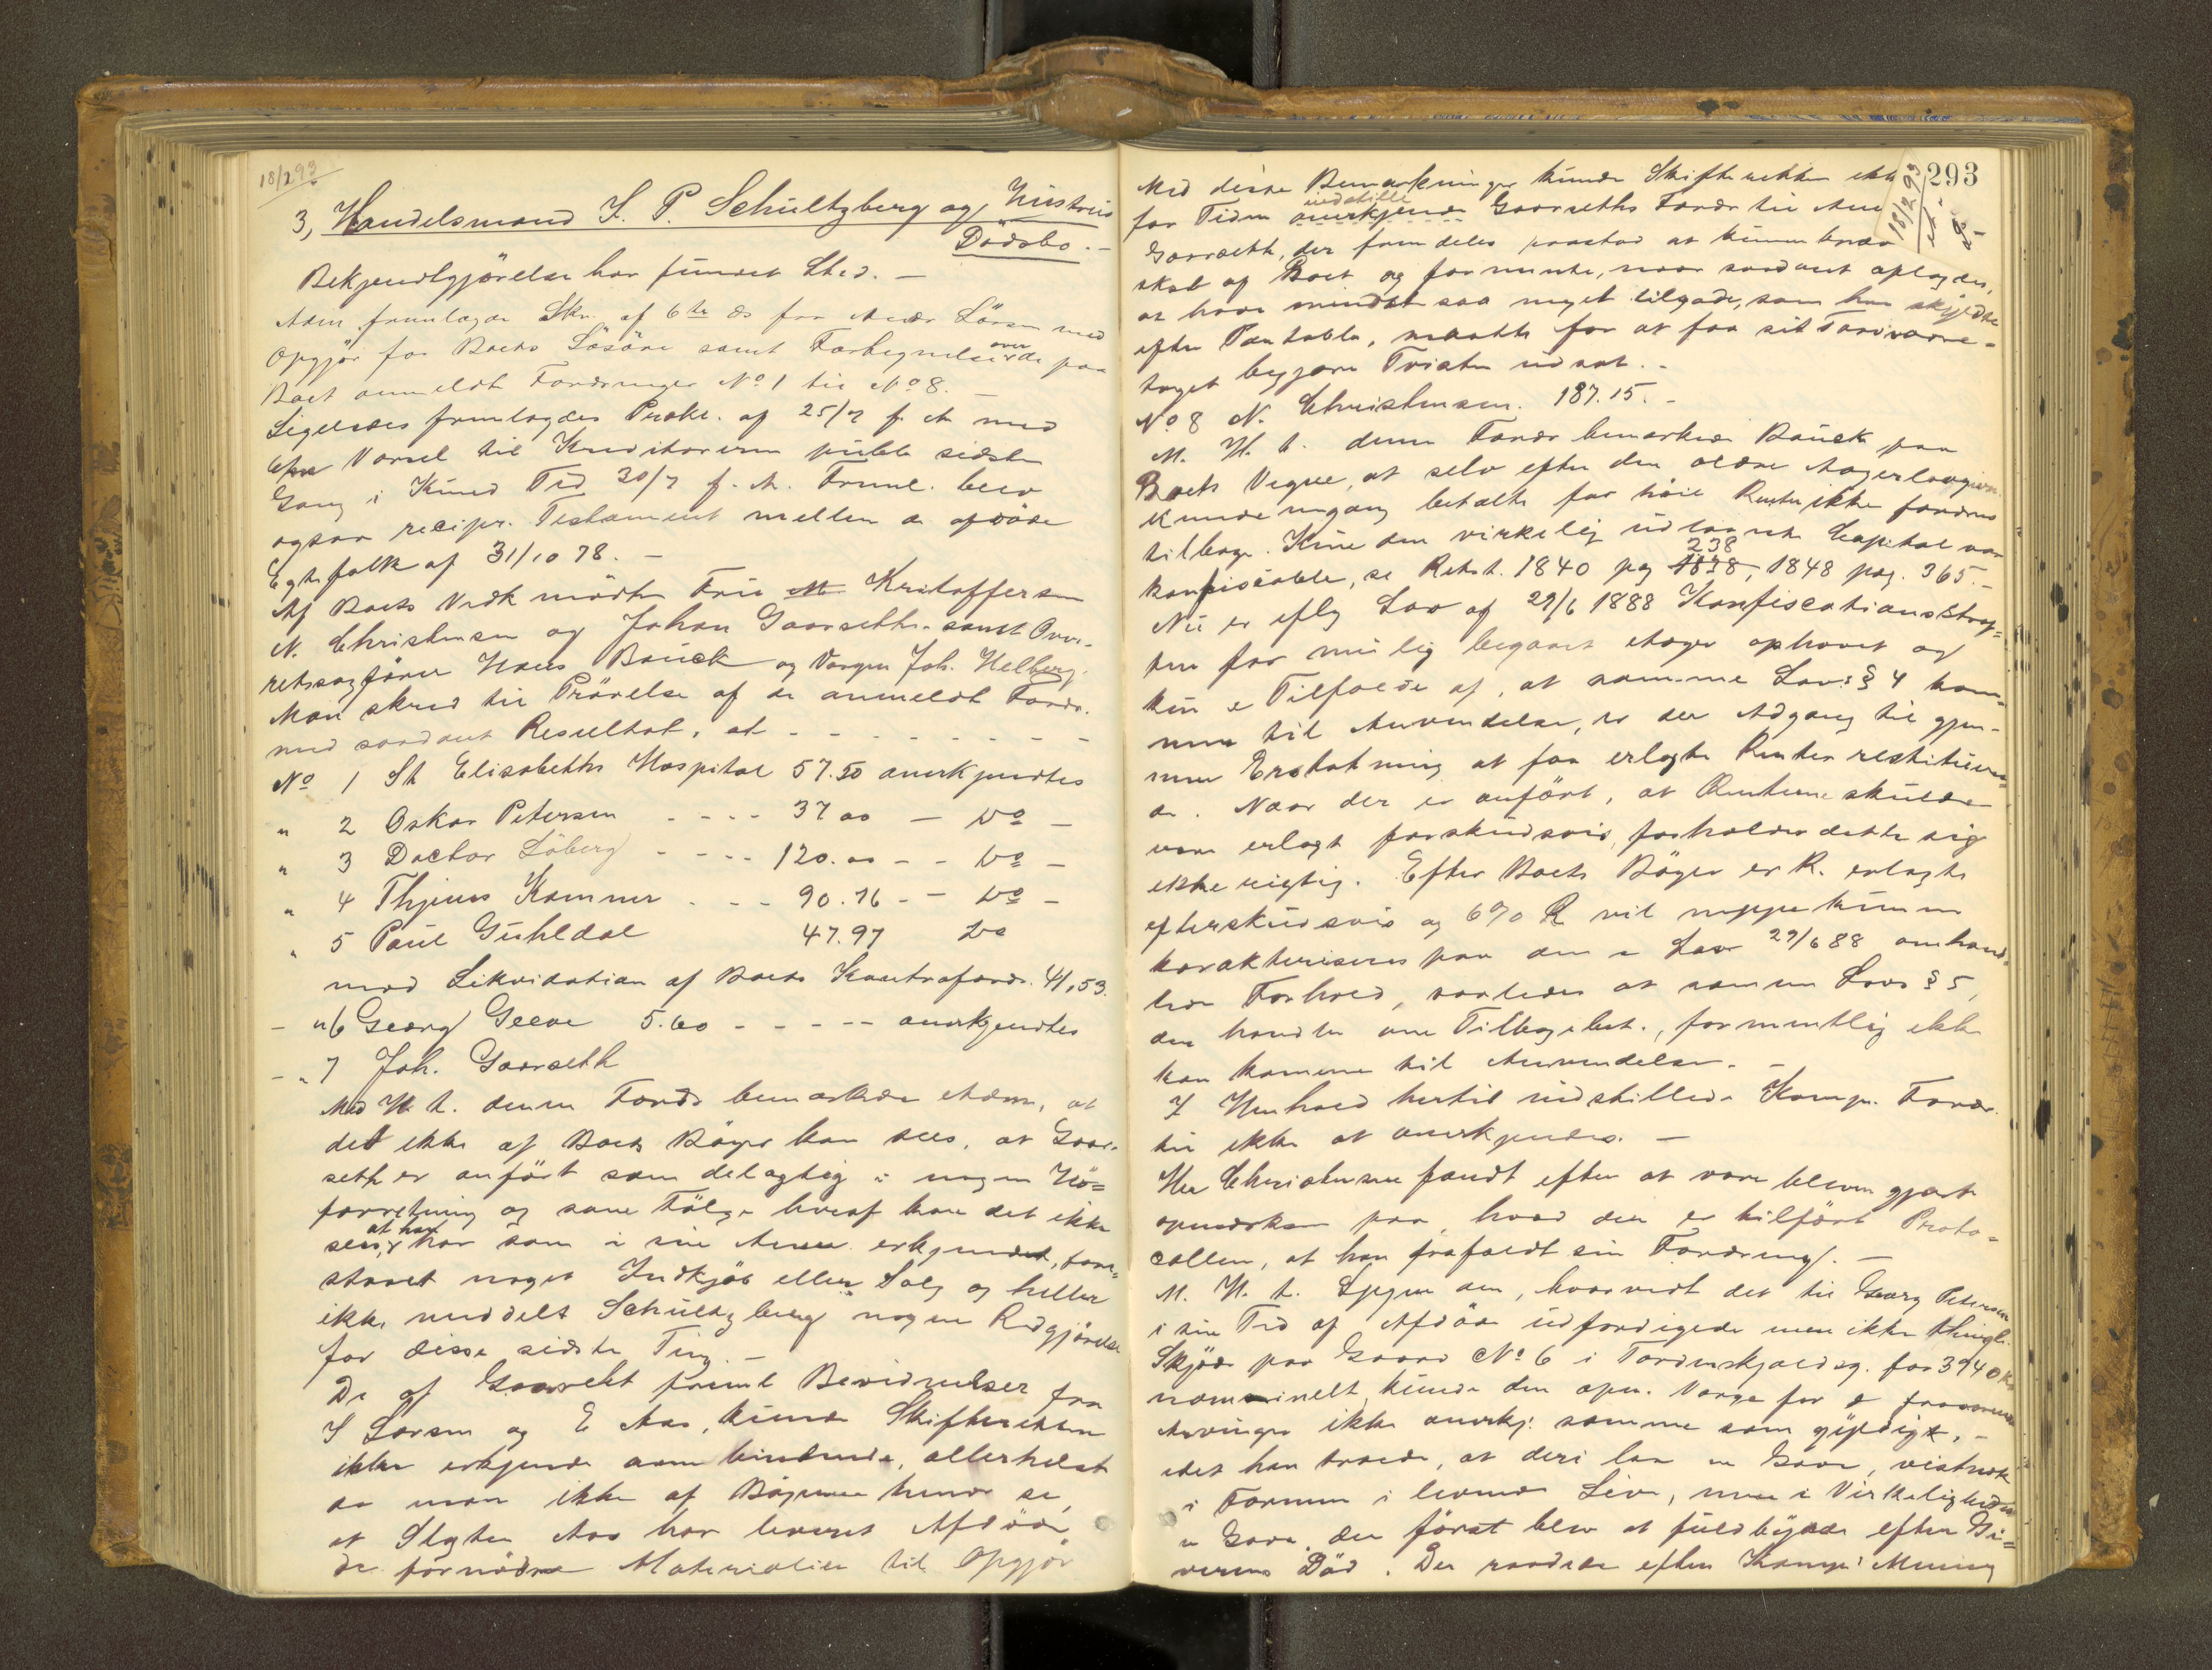 18/293
3, Handelsmand S. P. Schultzberg og Hustrus
Dödsbo. -
Bekjendtgjörelse har fundet Sted. -
Adm. fremlagde Skr. af 6te ds fra Aud. Larsen med
Opgjör for Boets Lösöre samt Fortegnelse over de paa
Boet anmeldt Fordringer No 1 til No 8. -
Ligeledes fremlagdes Prokl. af 25/7 f. A. med
Varsel til Kreditorerne publ. sidste
Gang i Kund Tid 30/7 f. A. Freml. blev
ogsaa recipr. Testament mellem de afdöde
Egtefolk af 31/10 78. -
Af Boets Vedk mödte Fru Kristoffersen
N. Christensen og Johan Gaarseth samt Over-
retssagförer Hans Bauck og Vergen Joh. Helberg.
Man skred til Prövelse af de anmeldt Fordr.
med saadant Resultat, at - - - - - - - -
No 1 St Elisabeths Hospital 57.50 anerkjendtes
" 2 Oskar Petersen - - - - 37 00 - Do -
" 3 Doctor Löberg - - - - 120.00 - - Do -
" 4 Thjems Kommer - - - 90.76 - - Do -
" 5 Paul Guhldal 47.97 Do
mod Likvidation af Boets Kontrafordr. 41,53.
- " 6 Georg Greve 5.60 - - - - - anerkjendtes
- " 7 Joh. Gaarseth
Med H. t. denne Fordr bemærkede Adm, at
det ikke af Boets Böger kan sees, at Gaar-
seth er anfört som delagtig i nogen Hö=
forretning og som Fölge hveraf kan det ikke
sees, at han har som i sin Anm. erkjendt, fore=
staaet noget Indkjöb eller Salg og heller
ikke meddelt Schultzberg nogen Redgjörelse
for disse sidste Ting. -
De af Gaarseth freml Bevidnelser fra
S Larsen og E Aas, kunde Skifteretten
ikke erkjende som bindende, allerhelst
da man ikke af Bögerne kunde se,
at Slagter Aas har leveret Afdöde
de fornödne Materialier til Opgjör
293
18/293
Med disse Bemærkninger kunde Skifteretten ikke
indstille
for Tiden anerkjende Gaarseths Fordr til Ane
Gaarseth, der fremdeles paastod at kunne
skal af Boet og formente, naar saadant oplagdes,
at have mindst saa meget tilgode, som han skyldte
efter Pantobl., maatte for at faa sit Tarv vare=
taget begjære Tvisten udsat. -
No 8 N. Christensen. 187.15. -
M. H. t. denne Fordr bemærkede Bauck paa
Boets Vegne, at selv efter den ældre Aagerlovgivn.
kunde engang betalte for höie Renter ikke fordres
tilbage. Kun den virkelig udlaante Capital var
238
konfiscable, se Retst. 1840 pag 1838, 1848 pag. 365. -
Nu er iflg Lov af 29/6 1888 Konfiscationsstraf=
fen for mulig begaaet Aager ophævet og
kun i Tilfælde af, at samme Lovs § 4 kom=
mer til Anvendelse, er der Adgang til gjen-
nem Erstatning at faa erlagte Renter restituere=
de. Naar der er anfört, at Renterne skulde
være erlagt forskudsvis, forholder dette sig
ikke rigtig. Efter Boets Böger er R. erlagte
efterskudsvis og 6% R vil neppe kunne
karakteriseres paa den i Lov 29/6 88 omhand=
lede Forhold, saaledes at samme Lovs § 5,
der handler om Tilbagebet., formentlig ikke
kan komme til Anvendelse. -
I Henhold hertil indstilledes Komp. Fordr.
til ikke at anerkjendes. -
Her Christensen fandt efter at være bleven gjort
opmærksom paa, hvad der er tilfört Proto=
collen, at han frafaldt sin Fordring. -
M. H. t. Spgm om, hvorvidt det til Georg Petersen
i sin Tid af Afdöde udfærdigede men ikke thingl.
Skjöde paa Gaard No 6 i Tordenskjoldsg. for 3940 Kr
nominelt, kunde den opn. Verge for de fraværende
Arvinger ikke anerkj. samme som gyldigt, -
idet han troede, at deri laa en Gave, vistnok
i Formen i levende Live, men i Virkeligheden
en Gave, der först blev at fuldbyrde efter Gi=
verens Död. Der raadede efter Komp. Mening